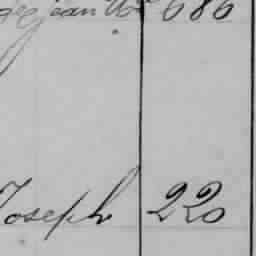 Jean 686
Joseph 220